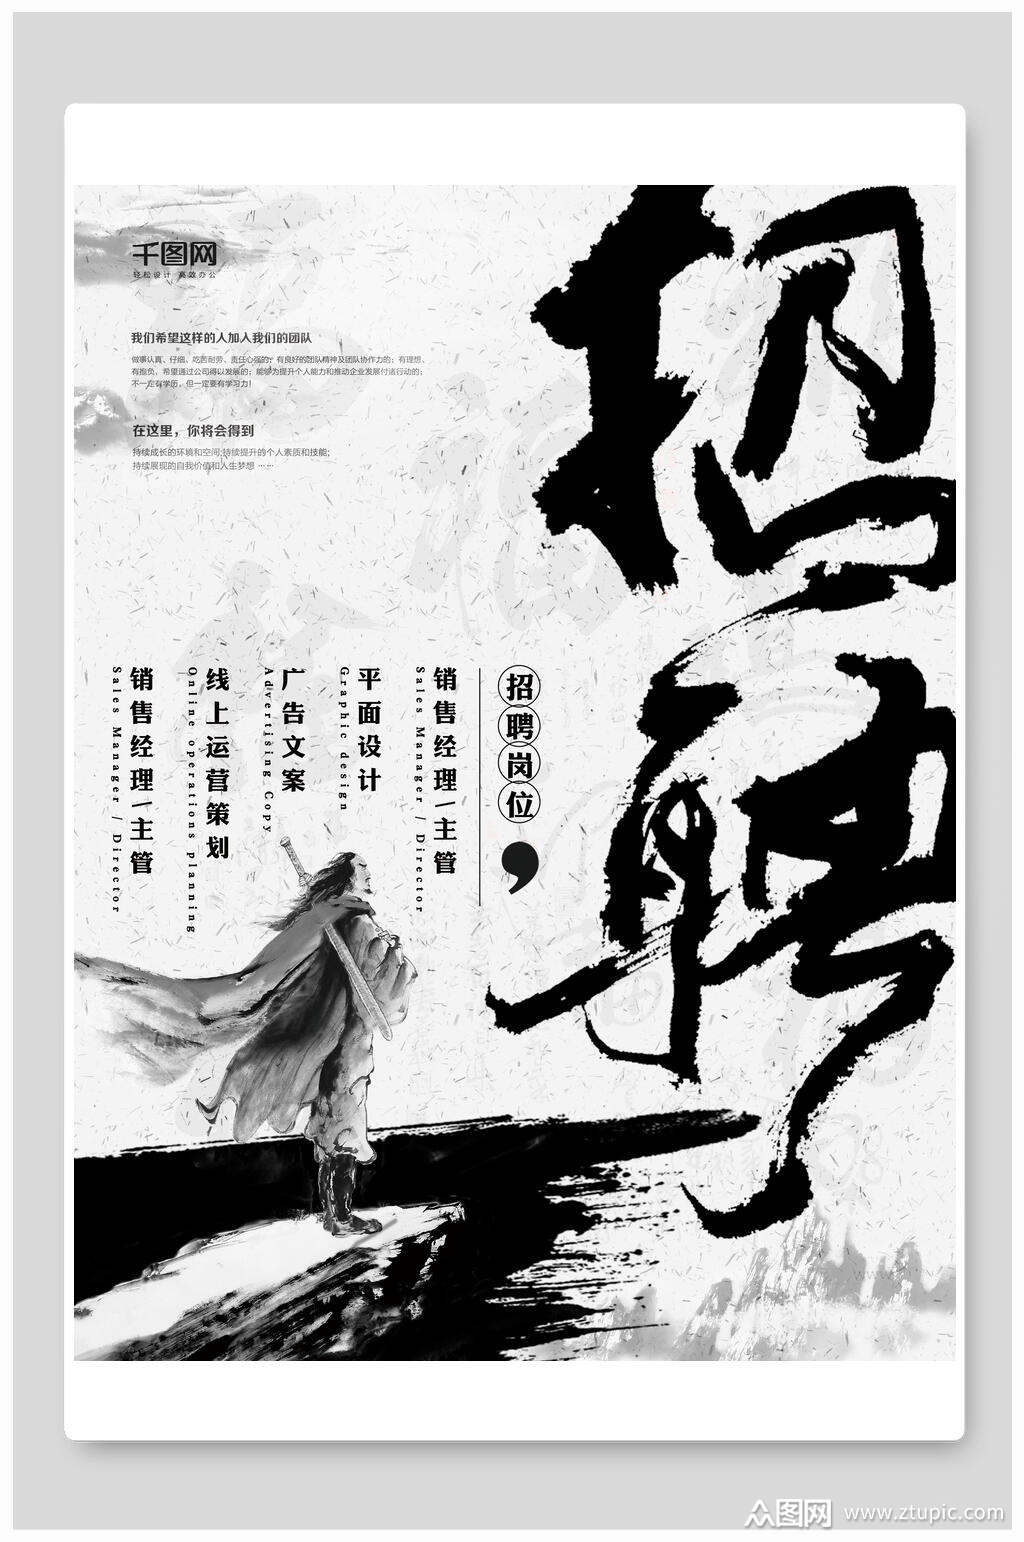 招聘
千图网
轻松设计 高效办公
我们希望这样的人加入我们的团队
做事认真、仔细、吃苦耐劳、责任心强的；有良好的团队精神及团队协作力的；有理想、
有抱负，希望通过公司得以发展的；能够为提升个人能力和推动企业发展付诸行动的；
不一定有学历，但一定要有学习力！
在这里，你将会得到
持续成长的环境和空间;持续提升的个人素质和技能;
持续展现的自我价值和人生梦想 ……
招聘岗位，
销售经理\主管
Sales Manager / Director
平面设计
Graphic design
广告文案
Advertising Copy
线上运营策划
Online operations planning
销售经理\主管
Sales Manager / Director
众图网 www.ztupic.com